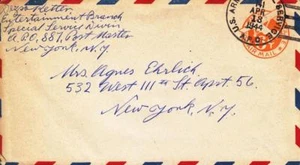 Entertainment Branch
Special Service Divn
A.P.O. 887, Post Master
New York, N.Y.
U.S. ARMY
APR
18
A.P.O.
Mrs Agnes Ehrlich
532 West 111th St. Apt. 56.
New York, N.Y.